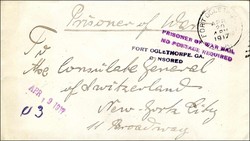 Prisoner of War
FORT OGLETHORPE
1917
PRISONER OF WAR MAIL
NO POSTAGE REQUIRED
FORT OGLETHORPE, GA.
CENSORED
The Consulate General
of Switzerland
New York City
11 Broadway
APR 19 1917